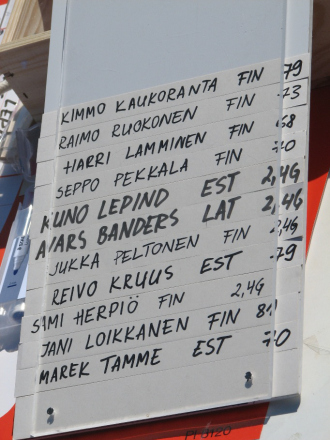 KIMMO KAUKORANTA FIN 79
RAIMO RUOKONEN FIN 73
HARRI LAMMINEN FIN 68
SEPPO PEKKALA FIN 70
KUNO LEPIND EST 2,4G
AIVARS BANDERS LAT 2,4G
JUKKA PELTONEN FIN 2,4G
REIVO KRUUS EST 79
SAMI HERPIÖ FIN 2,4G
JANI LOIKKANEN FIN 81
MAREK TAMME EST 70